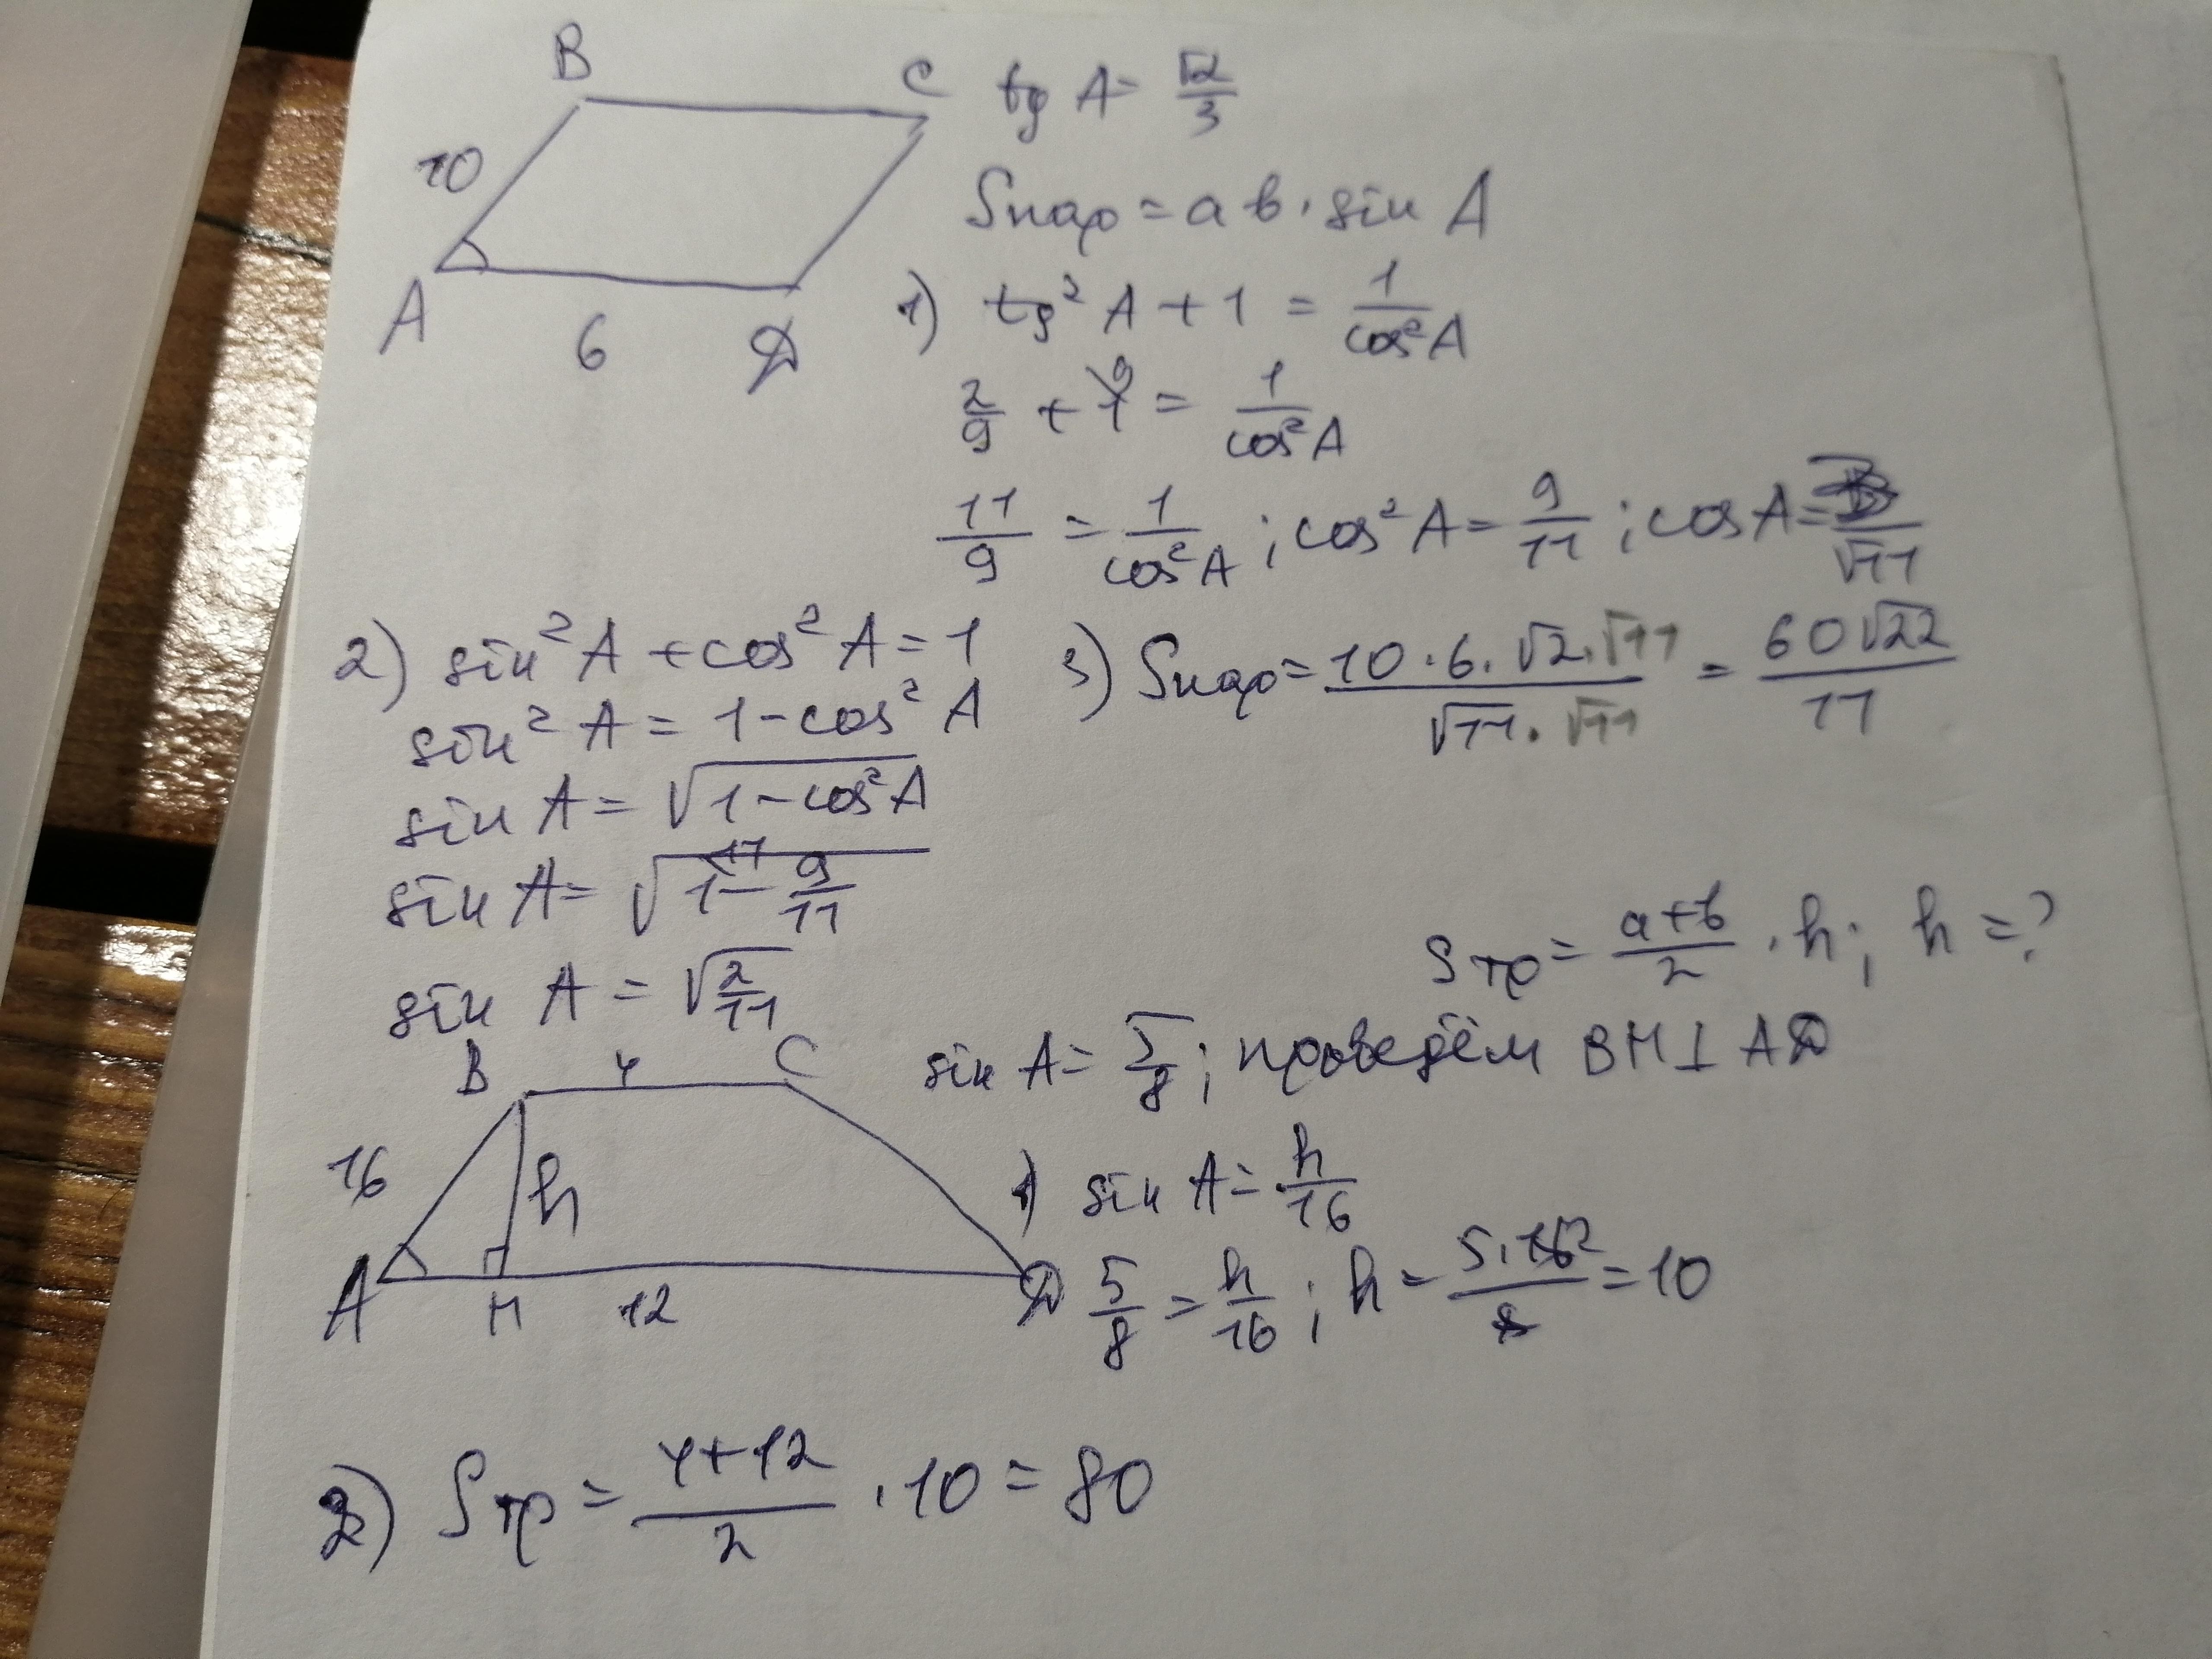 B C tg A = √2/3
10
Sпар = ab · sin A
A 6 D
1) tg² A + 1 = 1/cos² A
2/9 + 1⁹ = 1/cos² A
11/9 = 1/cos² A ; cos² A = 9/11 ; cos A = 3/√11
2) sin² A + cos² A = 1
sin² A = 1 - cos² A
sin A = √(1 - cos² A)
sin A = √(1¹¹ - 9/11)
sin A = √(2/11)
3) Sпар = (10 · 6 · √2 · √11)/(√11 · √11) = 60√22/11
Sтр = (a+b)/2 · h ; h = ?
B 4 C
sin A = 5/8 ; проведём BH ⊥ AD
16 h
A H 12 D
1) sin A = h/16
5/8 = h/16 ; h = (5 · 16²)/8 = 10
2) Sтр = (4+12)/2 · 10 = 80